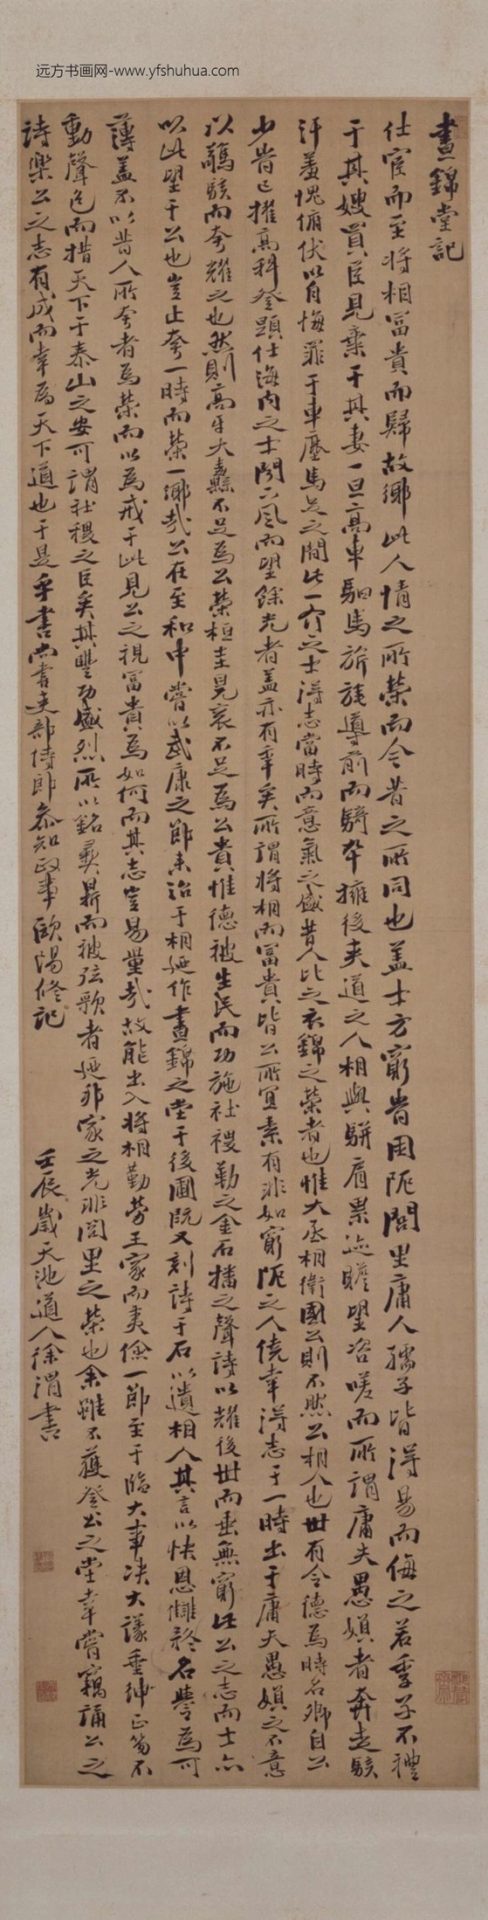 远方书画网-www.yfshuhua.com
晝錦堂記
仕宦而至將相富貴而歸故鄉此人情之所榮而今昔之所同也蓋士方窮時困阨閭里庸人孺子皆得易而侮之若季子不禮
于其嫂買臣見棄于其妻一旦高車駟馬旂旄導前而騎卒擁後夾道之人相與駢肩累迹瞻望咨嗟而所謂庸夫愚婦者奔走駭
汗羞愧俯伏以自悔罪于車塵馬足之間此一介之士得志當時而意氣之盛昔人比之衣錦之榮者也惟大丞相衛國公則不然公相人也世有令德為時名卿自公
少時已擢高科登顯仕海內之士聞下風而望餘光者蓋亦有年矣所謂將相而富貴皆公所宜素有非如窮阨之人僥幸得志于一時出于庸夫愚婦之不意
以驚駭而夸耀之也然則高牙大纛不足為公榮桓圭冕裒不足為公貴惟德被生民而功施社稷勒之金石播之聲詩以耀後世而垂無窮此公之志而士亦
以此望于公也豈止夸一時而榮一鄉哉公在至和中嘗以武康之節來治于相廼作晝錦之堂于後圃既又刻詩于石以遺相人其言以快恩讎矜名譽為可
薄蓋不以昔人所夸者為榮而以為戒于此見公之視富貴為如何而其志豈易量哉故能出入將相勤勞王家而夷險一節至于臨大事決大議垂紳正笏不
動聲色而措天下于泰山之安可謂社稷之臣矣其豐功盛烈所以銘彝鼎而被弦歌者廼邦家之光非閭里之榮也余雖不獲登公之堂幸嘗竊誦公之
詩樂公之志有成而幸為天下道也于是乎書尚書吏部侍郎參知政事歐陽修記 壬辰歲天池道人徐渭書